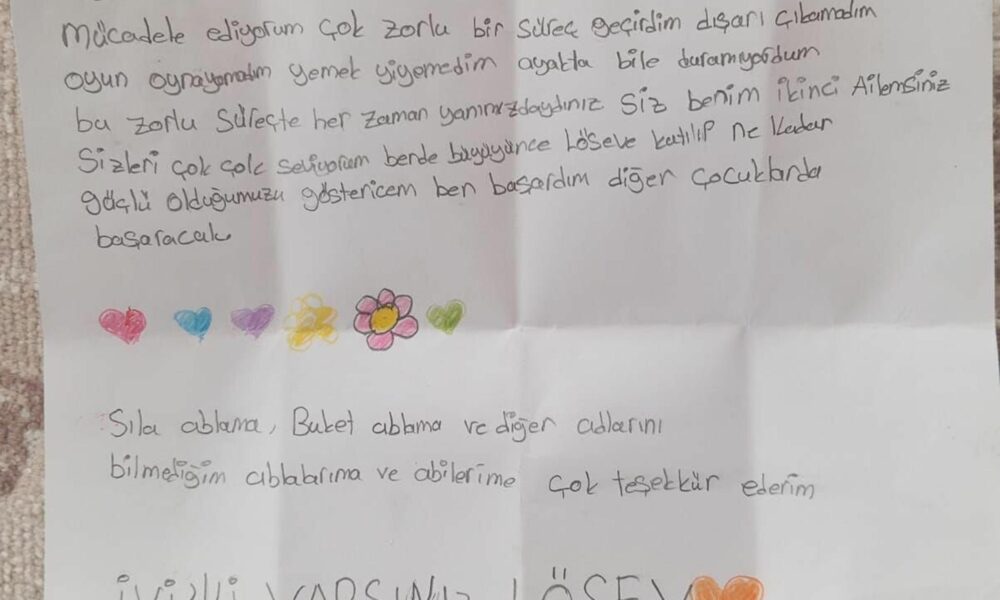 mücadele ediyorum çok zorlu bir süreç geçirdim dışarı çıkamadım
oyun oynayamadım yemek yiyemedim ayakta bile duramıyordum
bu zorlu süreçte her zaman yanımızdaydınız siz benim ikinci Ailemsiniz
Sizleri çok çok seviyorum bende büyüyünce Löseve katılıp ne kadar
güçlü olduğumuzu göstericem ben başardım diğer çocuklarda
başaracak
Sıla ablama, Buket ablama ve diğer adlarını
bilmediğim ablalarıma ve abilerime çok teşekkür ederim
iyiki VARSINIZ LÖSEV